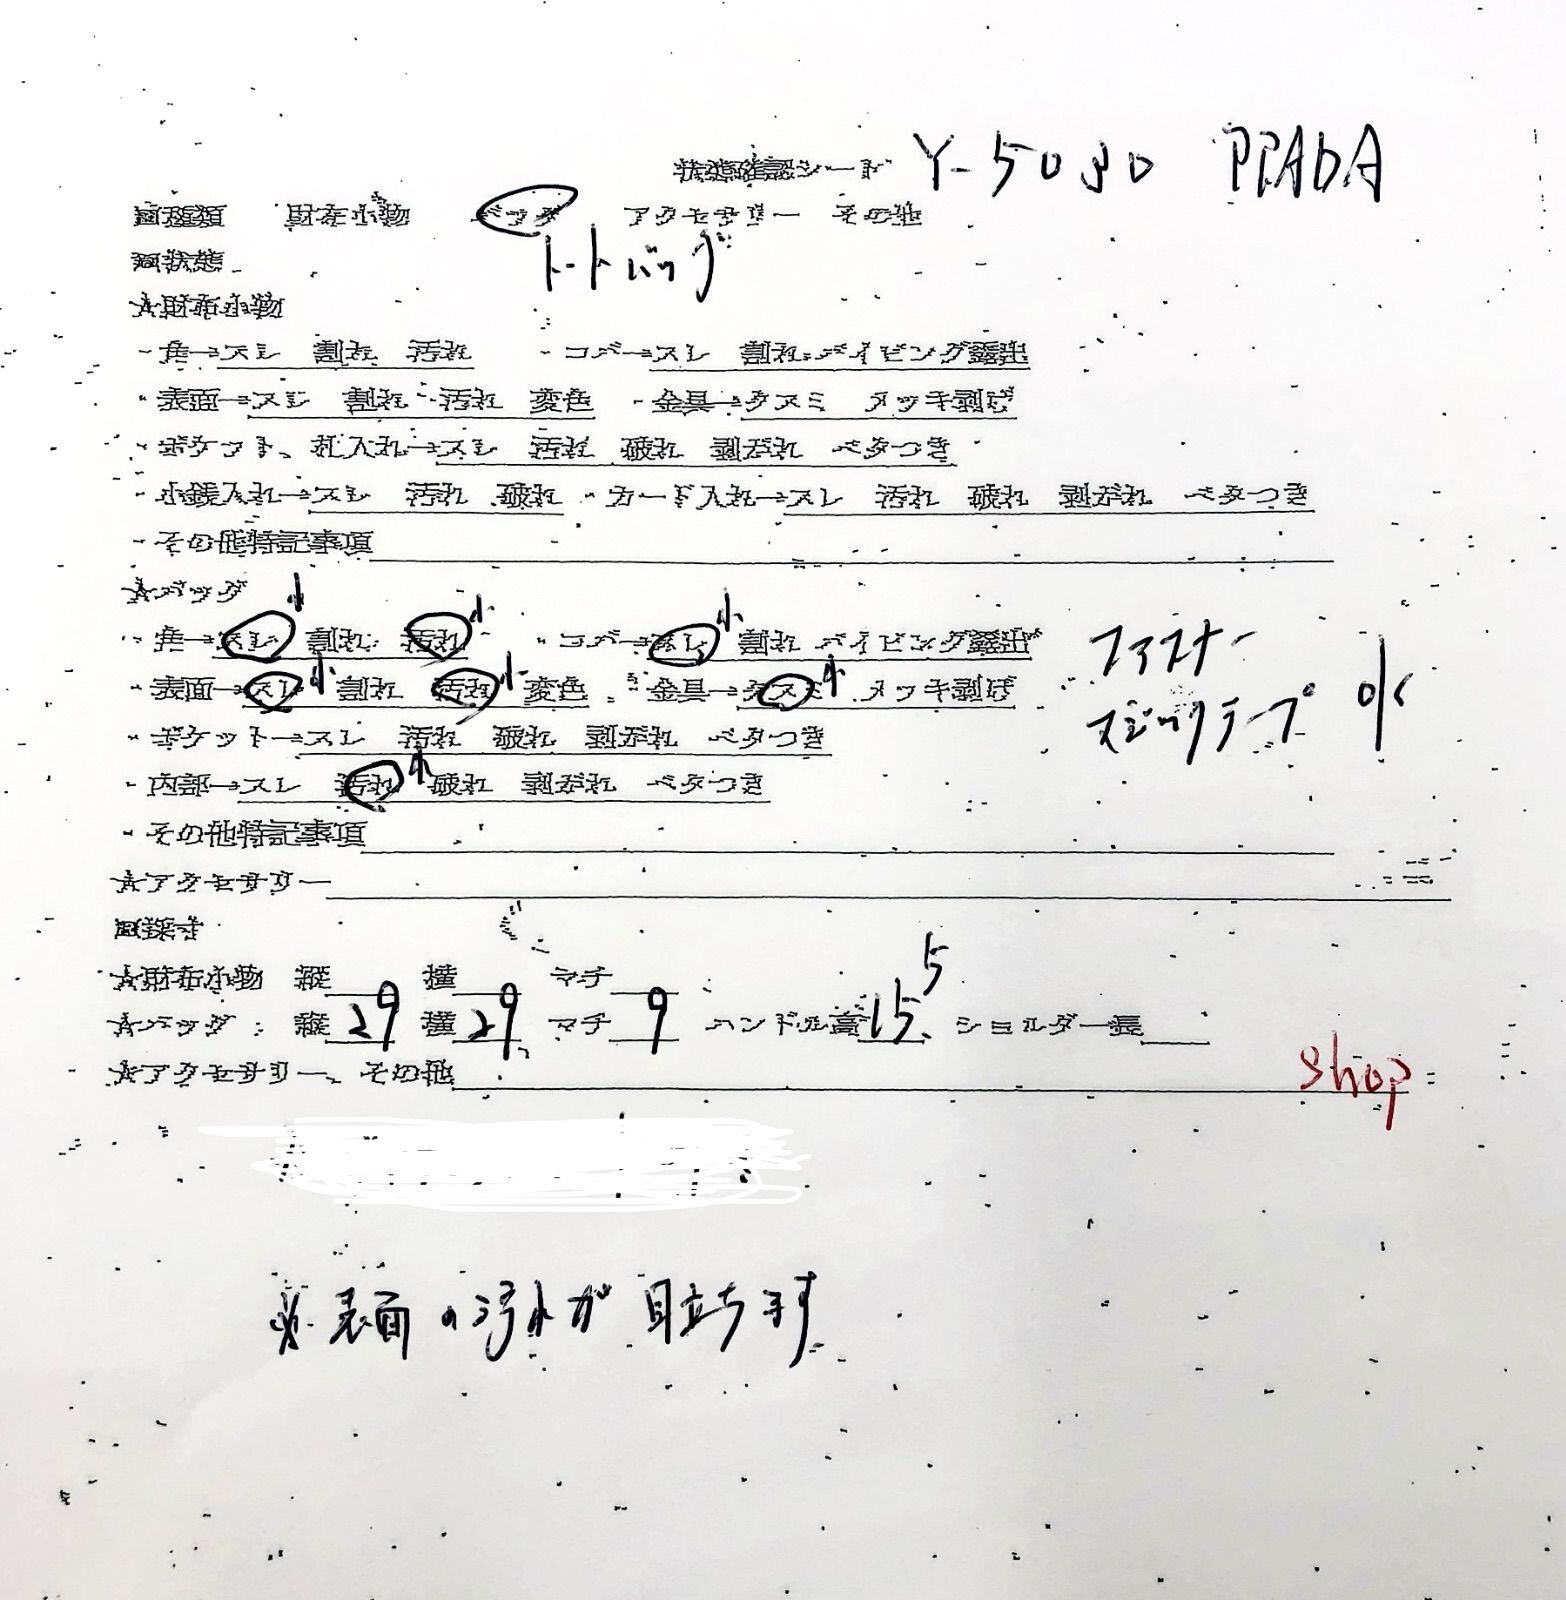 状態確認シート Y-5080 PRADA
回種類 財布小物 バッグ アクセサリー その他
トートバッグ
回状態
☆財布小物
・角→スレ 割れ 汚れ ・コバ→スレ 割れ パイピング露出
・表面→スレ 割れ 汚れ 変色 ・金具→クスミ メッキ剥げ
・ポケット、札入れ→スレ 汚れ 破れ 剥がれ ベタつき
・小銭入れ→スレ 汚れ 破れ ・カード入れ→スレ 汚れ 破れ 剥がれ ベタつき
・その他特記事項
☆バッグ
小 小 小
・角→スレ 割れ 汚れ ・コバ→スレ 割れ パイピング露出 ファスナー
小 小 小
・表面→スレ 割れ 汚れ 変色 ・金具→クスミ メッキ剥げ マジックテープ OK
・ポケット→スレ 汚れ 破れ 剥がれ ベタつき
小
・内部→スレ 汚れ 破れ 剥がれ ベタつき
・その他特記事項
☆アクセサリー
回採寸
☆財布小物 縦 横 マチ
☆バッグ 縦 29 横 29 マチ 9 ハンドル高 15.5 ショルダー長
☆アクセサリー、その他 shop
※表面の汚れが目立ちます